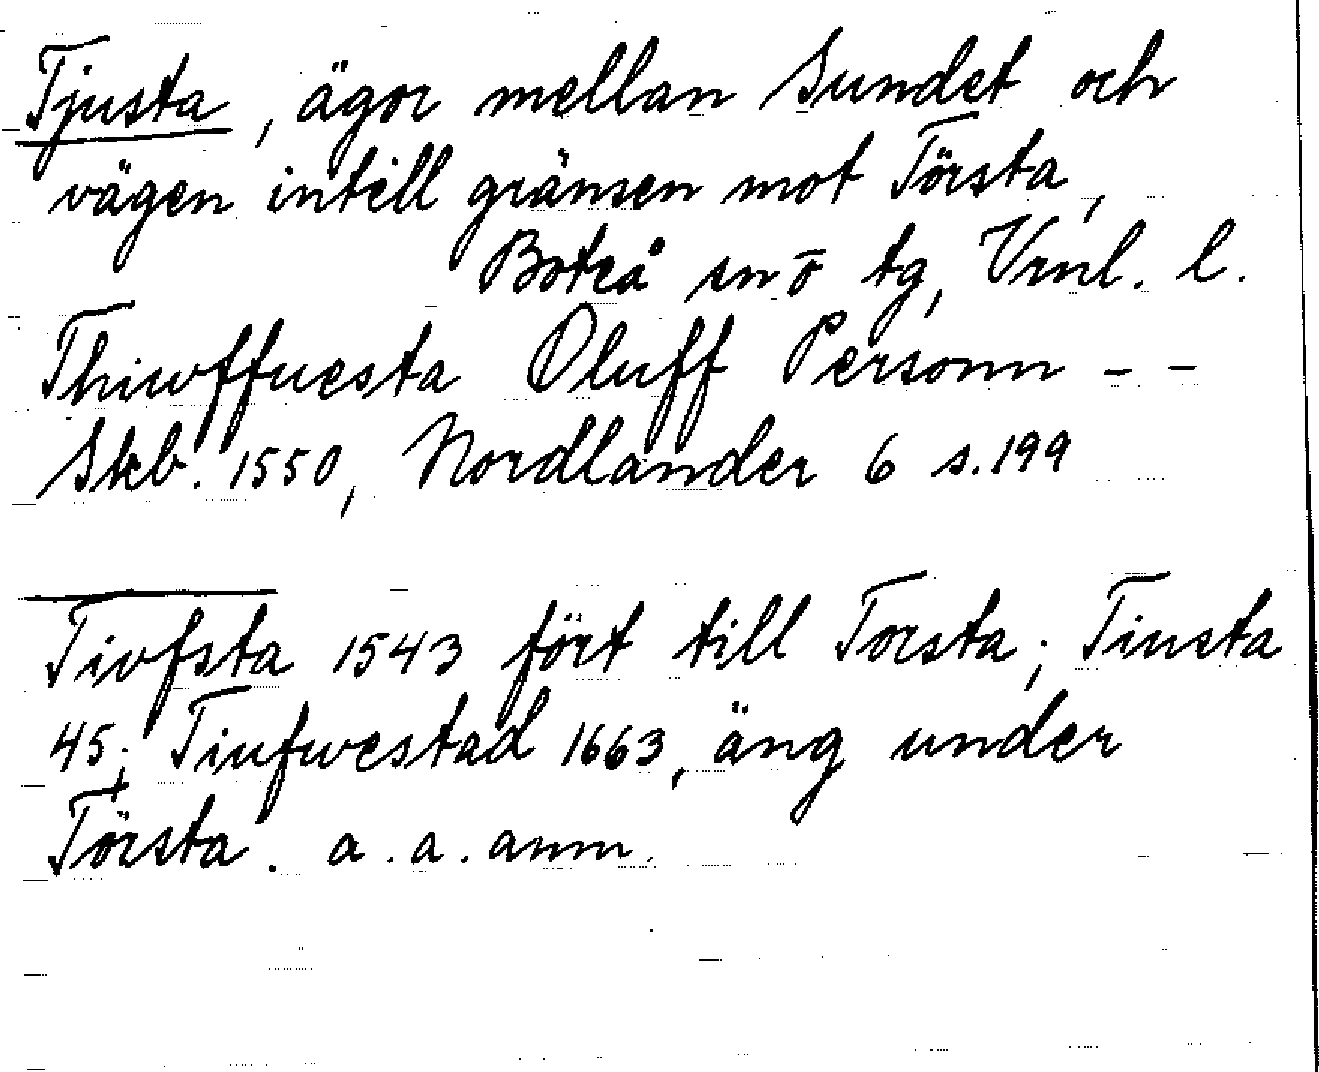 Tjusta, ägor mellan Sundet och
vägen intill gränsen mot Törsta,
Boteå sn ō tg, Vrnl. l.
Thiwffuesta Oluff Personn - -
Skb. 1550, Nordlander 6 s. 199
Tivfsta 1543 fört till Torsta; Tiusta
45; Tiufwestad 1663, äng under
Törsta. a.a. anm.